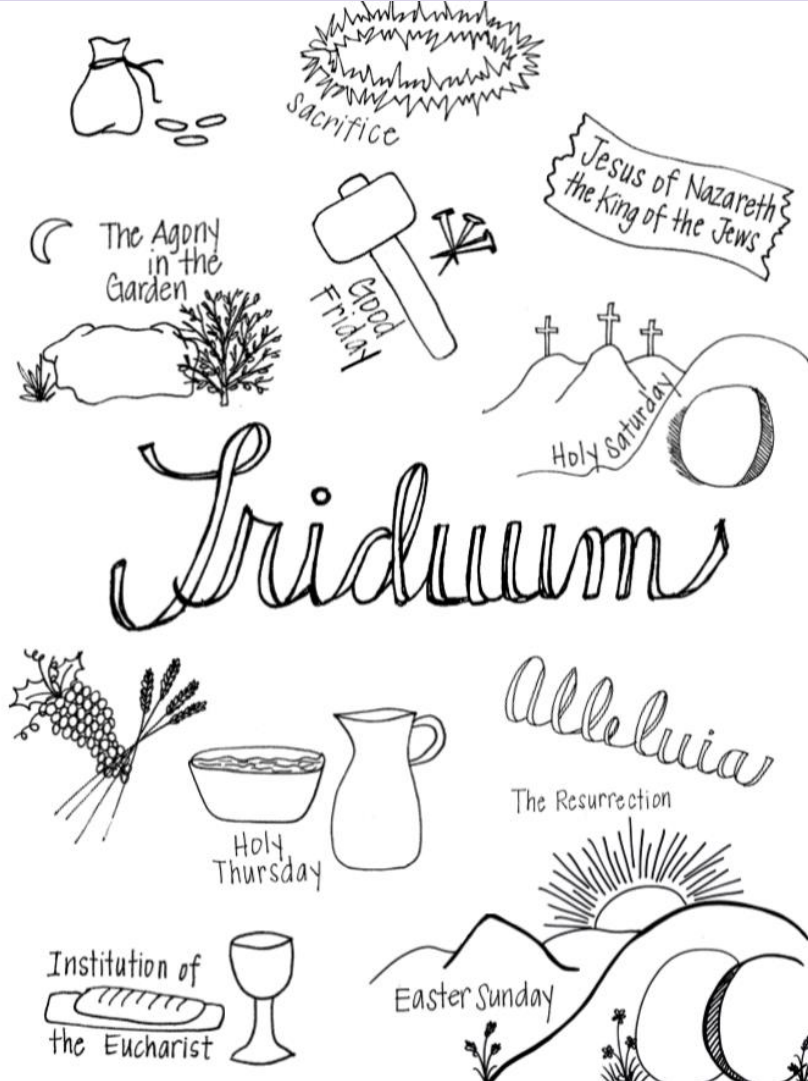 sacrifice
Jesus of Nazareth
the King of the Jews
The Agony
in the
Garden
Good
Friday
Holy Saturday
Triduum
Alleluia
The Resurrection
Holy
Thursday
Institution of
the Eucharist
Easter Sunday